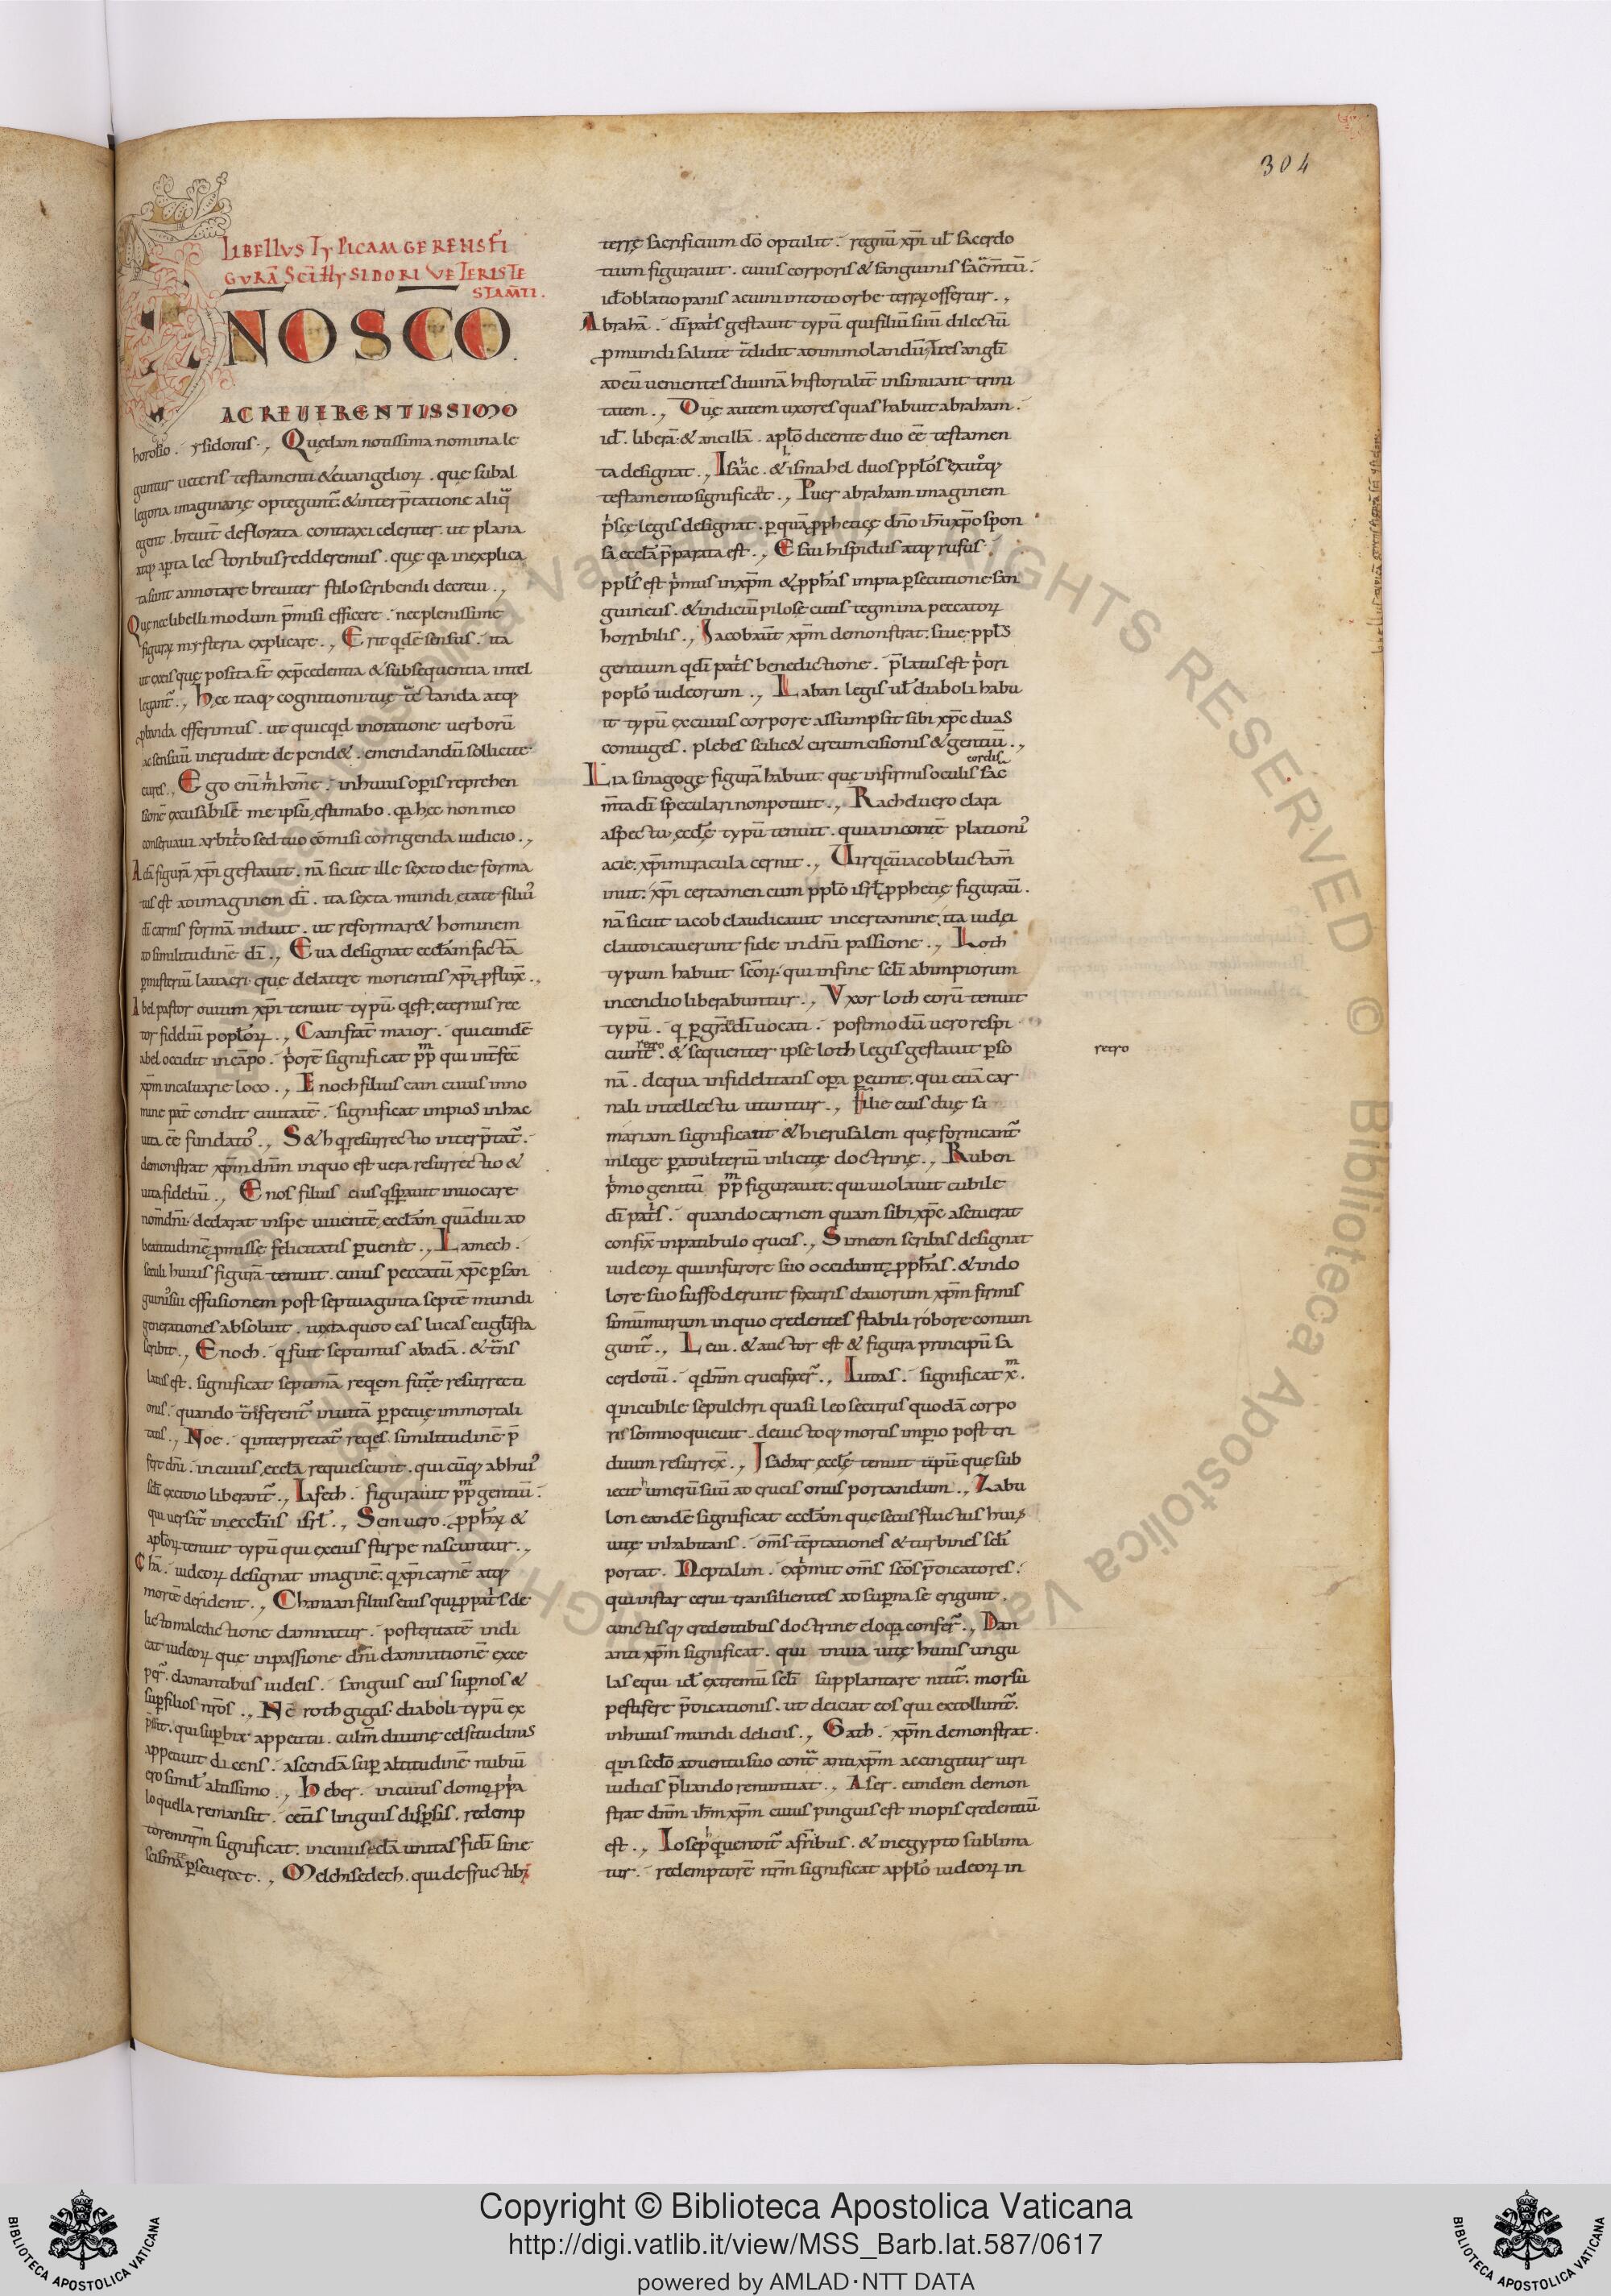 304
LIBELLVS TYPICAM GERENS FI
GURĀ SCĪ HYSIDORI VETERIS TE
STAM̄TI.
NOSCO
AC REVERENTISSIMO
horosio. ysidorus., Quędam notissima nomina le
guntur ueteris testamenti & euangelior̄. quę sub al
legoria imaginarię
egent. breuit̄ deflorata contraxi celeriter. ut plana
atq; ap̄ta lectoribus redderemus. quę q̄a inexplica
ta sunt annotare breuiter stilo scribendi decreui.,
Quę nec libelli modum p̄misi efficere. nec plenissime
figurar̄ mysteria explicare., Erit q̄dē sensus. ita
ut ex eis quę posita st̄ ex p̄cedentia & subsequentia intel
legant̄., Hęc itaq; cognitioni tuę tractanda atq;
efferimus. ut quicq̄d in oratione uerborū
ac sensuū inerudite depend&. emendandū sollicite
cures., Ego enī in huius opis reprehen
sionē excusabilē me ipsū, estimabo. q̄a hęc non meo
conseruaui arbit̄o sed tuo cōmisi corrigenda iudicio.,
Adā figurā xp̄i gestauit. nā sicut ille sexto die forma
tus est ad imaginem dī. ita sexta mundi ętate filiꝰ
dī carnis formā induit. ut reformar& hominem
ad similitudinē dī., Eua designat eccl̄am factā
p misteriū lauacri. que de latere morientis xp̄i p̄fluxit.,
Abel pastor ouium xp̄i tenuit typū. q̄ est eternus rec
tor fideliū popl̄or̄., Cain frat̄ maior. qui eundē
abel occidit in cāpo. p̄orē significat pp̄m qui int̄fec̄
xp̄m in caluarie loco., Enoch filius cain cuius in no
mine pat̄ condit ciuitatē. significat impios in hac
uita eē fundatoꝰ., S&h q̄ resurrectio interp̄tat̄.
demonstrat xp̄m dn̄m in quo est uera resurrectio &
uita fideliū., Enos filius eius q̄ sp̄auit inuocare
nom̄ dn̄i. declarat in spe uiuentē eccl̄am quādiu ad
beatitudinē p̄missę felicitatis p̄uenit., Lamech.
seculi huius figurā tenuit. cuius peccatū xp̄c p san
guinis sui effusionem post septuaginta septē mundi
generationes absoluit. iuxta quod eas lucas eugl̄ista
scribit., Enoch. q̄ fuit septimus ab adā. & t̄ns
latus est. significat septimā req̄em fut̄e resurrecti
onis. quando t̄nsferent̄ in uitā ppetuę immortali
tatis., Noe. q̄ interpretat̄ req̄es. similitudinē p̄
fert dn̄i. in cuius eccl̄a requiescunt. qui cūq; ab huiꝰ
scl̄i excidio liberant̄., Iafeth. figurauit pp̄m gentiū.
qui uersat̄ in eccl̄iis isrl̄., Sem uero. p̄ph̄ar̄ &
apl̄or̄ tenuit typū qui ex eius stirpe nascuntur.,
Chā. iudeor̄ designat imaginē. q̄ xp̄i carnē atq;
mortē derident., Chanaan filius eius qui p̄ pat̄s de
licto maledictione damnatur. posteritatē indi
cat iudeor̄ que in passione dn̄i damnationē exce
per̄. clamantibus iudeis. sanguis eius sup̄ nos &
sup̄ filios nr̄os., Nēroth gigas. diaboli typū ex
p̄ssit. qui supbię appetitu. culm̄ diuinę celsitudinis
appetiuit dicens. ascendā sup̄ altitudinē nubiū
ero similis altissimo., Heber. in cuius domo p̄pa
loquella remansit. cet̄is linguis disp̄sis. redemp
torem nr̄m significat. in cuius eccl̄a unitas fidī sine
scismate p̄seueret., Melchisedech. qui de fructibꝰ
terrę sacrificium dō optulit. regnū xp̄i ul̄ sacerdo
tium figurauit. cuius corporis & sanguinis sac̄m̄tū.
id oblatio panis ac uini in toto orbe terrar̄ offertur.,
Abrahā. dī pat̄s gestauit typū qui filiū suū dilectū
p mundi salute t̄didit ad immolandū, Tres angl̄i
ad eū uenientes diuinā historialit̄ insinuant trini
tatem., Duę autem uxores quas habuit abraham.
id. liberā. & ancillā. apl̄o dicente duo eē testamen
ta designat., Isaac. & ismahel duos ppl̄os ex utroq;
testamento significat., Puer abraham imaginem
p̄scę legis designat. p quā p̄phetię dn̄o ih̄u xp̄o spon
sa eccl̄a p̄parata est., Esau hispidus atq; rufus.
ppl̄s est p̄mus in xp̄m & p̄ph̄as impia p̄secutione san
guineus. & indiciū pilose cutis tegmina peccator̄
horribilis., Iacob aūt xp̄m demonstrat. siue ppl̄s
gentium q̄ dī pat̄s benedictione. p̄latus est p̄ori
popl̄o iudeorum., Laban legis ul̄ diaboli habu
it typū ex cuius corpore assumpsit sibi xp̄c duas
coniuges. plebes scilic& circumcisionis & gentiū.,
cordis
Lia sinagogę figurā habuit. que infirmis oculis sac̄
m̄ta dī speculari non potuit., Rachel uero clara
aspectu, eccl̄ę typū tenuit. quia in contēplationiꝰ
acie. xp̄i miracula cernit., Uir q̄ cū iacob luctam̄
iniit. xp̄i certamen cum ppl̄o isrl̄ p̄phetię figurauit̄.
nā sicut iacob claudicauit in certamine. ita iudei
claudicauerunt fide in dn̄i passione., Loth
typum habuit sc̄or̄. qui in fine scl̄i ab impiorum
incendio liberabuntur., Vxor loth eorū tenuit
typū. q̄ p gr̄am dī uocati. postmodū uero respi
ciunt retro. & sequenter ipse loth legis gestauit p̄so
retro
nā. de qua infidelitatis opa pereunt. qui eciā car
nali intellectu utuntur., Filie eius duę sa
mariam significant & hierusalem quę fornicant̄
in lege p adulteriū inlicitę doctrinę., Ruben
p̄mogenitū pp̄m figurauit. qui uiolauit cubile
dī pat̄s. quando carnem quam sibi xp̄c asciuerat
confix̄ in patibulo crucis., Simeon scribas designat
iudeor̄ qui in furore suo occidunt p̄ph̄as. & in do
lore suo suffoderunt fixuris clauorum xp̄m firmis
simū murum in quo credentes stabili robore coniun
gunt̄., Leui. & auctor est & figura principū sa
cerdotū. q̄ dn̄m crucifixer̄., Iudas. significat xp̄m.
q̄ in cubile sepulchri quasi leo securus quodā corpo
ris somno quieuit. deuictoq; mortis impio post tri
duum resurrex̄., Isachar eccl̄ę tenuit tipū quę sub
iecit humerū suū ad crucis onus portandum., Zabu
lon eandē significat eccl̄am que secus fluctus huiꝰ
uitę inhabitans. om̄s tēptationes & turbines scl̄i
portat. Neptalim. exp̄mit om̄s sc̄os p̄dicatores.
qui instar cerui transilientes ad sup̄na se erigunt.
cunctisq; credentibus doctrine eloq̄a confer̄., Dan
anti xp̄m significat. qui in uia uitę huius ungu
las equi id extremū scl̄i supplantare nitit̄. morsu
pestifere p̄dicationis. ut deiciat eos qui extollunt̄.
in huius mundi deliciis., Gath. xp̄m demonstrat.
q̄ in scd̄o aduentu suo cont̄ anti xp̄m accingitur uiri
iudicis p̄liando renuntiat., Aser. eundem demon
strat dn̄m ih̄m xp̄m cuius pinguis est in opis credentiū
est., Ioseph q̄ uendit̄ a frībus. & in egypto sublima
tur. redemptorē nr̄m significat a ppl̄o iudeor̄ in
Copyright © Biblioteca Apostolica Vaticana
http://digi.vatlib.it/view/MSS_Barb.lat.587/0617
powered by AMLAD·NTT DATA
BIBLIOTECA APOSTOLICA VATICANA
BIBLIOTECA APOSTOLICA VATICANA
ALL RIGHTS RESERVED © Biblioteca Apostolica Vaticana